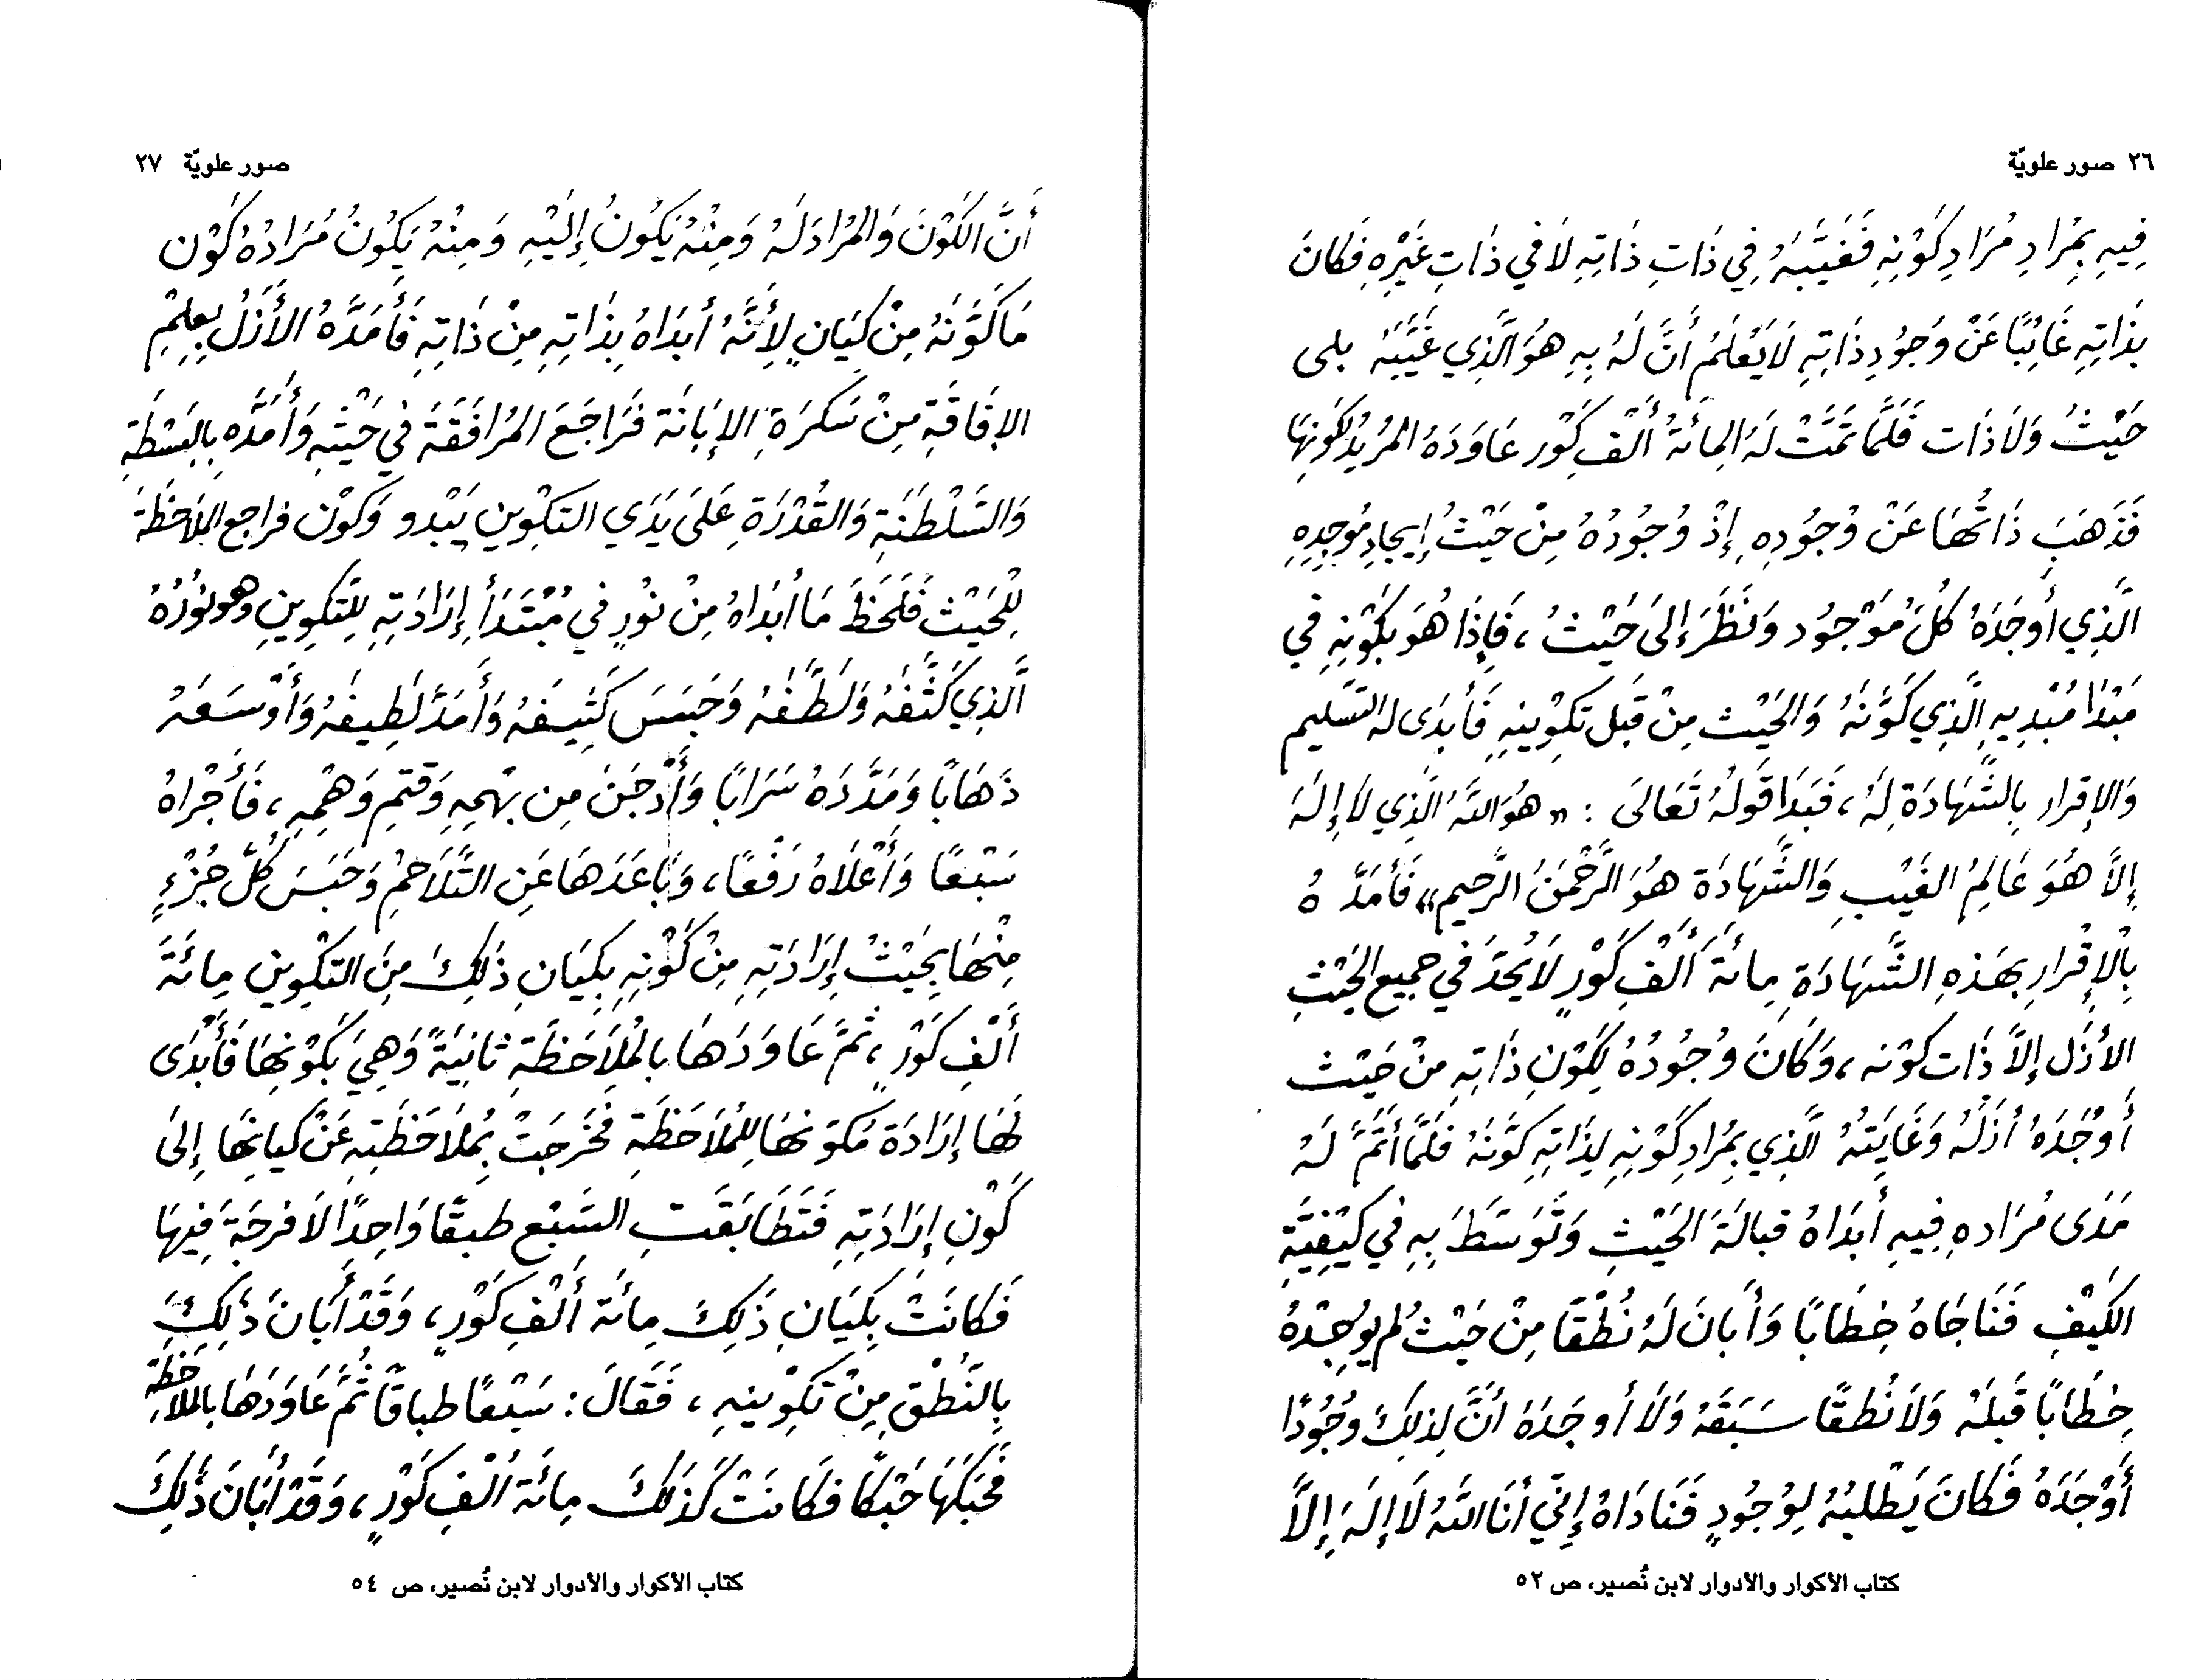 ٢٦ صور علويّة
فِيهِ بِمُرَادِ مُرَادِ كَوْنِهِ فَغَيَّبَهُ فِي ذَاتِ ذَاتِهِ لَا فِي ذَاتِ غَيْرِهِ فَكَانَ
بِذَاتِهِ غَائِبًا عَنْ وُجُودِ ذَاتِهِ لَا يَعْلَمُ أَنَّ لَهُ بِهِ هُوَ الَّذِي غَيَّبَهُ بلى
حَيْثُ وَلَا ذَات فَلَمَّا تَمَّتْ لَهُ المِائَةُ أَلْفِ كَوْر عَاوَدَهُ المُرِيدُ لِكَوْنِهَا
فَذَهَبَ ذَاتُهَا عَنْ وُجُودِهِ إِذْ وُجُودُهُ مِنْ حَيْثُ إِيجَادِ مُوجِدِهِ
الَّذِي أَوْجَدَهُ كُلَّ مَوْجُود وَنَظَرَ إِلَى حَيْثُ، فَإِذَا هُوَ بِكَوْنِهِ فِي
مَبْدَا مُبْدِيهِ الَّذِي كَوَّنَهُ وَالحَيْث مِنْ قَبْلِ تَكْوِينِهِ فَأَبْدَى له التَسليم
وَالإقرار بِالشَّهَادَةِ لَهُ، فَبَدَا قَوْلُهُ تَعَالَى : «هُوَ اللَّهُ الَّذِي لَا إِلَهَ
إِلَّا هُوَ عَالِمُ الغَيْبِ وَالشَّهَادَة هُوَ الرَّحْمَنُ الرَّحِيم» فَأَمَدَّهُ
بِالإِقْرَارِ بِهَذِهِ الشَّهَادَةِ مِائَةَ أَلْفِ كَوْرٍ لَا يُحَدّ فِي جميع الحَيْثِ
الأَزَل إِلَّا ذَات كَوْنه، وَكَانَ وُجُودُهُ لِكَوْنِ ذَاتِهِ مِنْ حَيْث
أَوْجَدَهُ أَزَلُهُ وَغَايَتُهُ الَّذِي بِمُرَادِ كَوْنِهِ لِذَاتِهِ كَوَّنَهُ فَلَمَّا أَتَمَّ لَهُ
مَدَى مُرَادِهِ فِيهِ أَبْدَاهُ قبالَةَ الحَيْثِ وَتَوَسَّطَ بِهِ فِي كَيْفِيَّةِ
الكَيْفِ فَنَاجَاهُ خِطَابًا وَأَبَانَ لَهُ نُطْقًا مِنْ حَيْثُ لم يُوجِدْهُ
خِطَابًا قَبْلَهُ وَلَا نُطْقًا سَبَقَهُ وَلَا أوجَدَهُ أَنَّ لِذلِكَ وُجُودًا
أَوْجَدَهُ فَكَانَ يَطْلُبُهُ لِوُجُودٍ فَنَادَاهُ إِنِّي أَنَا اللَّهُ لَا إِلَهَ إِلَّا
كتاب الأكوار والأدوار لابن نُصير، ص ٥٢
صور علويّة ٢٧
أَنَّ الكَوْنَ وَالمُرَادَ لَهُ وَمِنْهُ يَكُونُ إِلَيْهِ وَمِنْهُ يَكُونُ مُرَادُهُ كَوْن
مَا كَوَّنَهُ مِنْ كِيَانٍ لِأَنَّهُ أَبْدَاهُ بِذَاتِهِ مِنْ ذَاتِهِ فَأَمَدَّهُ الأَزَلُ بِعِلْمِ
الإفَاقَةِ مِنْ سَكرَةِ الإبَانَة فَرَاجَعَ المُرَافَقَةَ فِي حَيْثِهِ وَأَمَدَّهِ بِالبَسْطَةِ
وَالسَّلْطَنَةِ وَالقُدْرَةِ عَلَى يَدَي التكوِين يَبْدو وَكَوْن فراجع المُلاحَظَة
لِلْحَيْث فَلَحَظَ مَا أَبْدَاهُ مِنْ نُورٍ فِي مُبْتَدَأ إِرَادَتِهِ لِلتَّكوِينِ وهو نُورُهُ
الَّذِي كَثَّفَهُ وَلَطَّفَهُ وَحَبَسَ كَثِيفَهُ وَأَمَدَّ لَطِيفَهُ وَأَوْسَعَهُ
ذَهَابًا وَمَدَّدَهُ سَرَابًا وَأَدْجَنَ مِن بَهْمِهِ وَقَتمِ وَهْمِهِ، فَأَجْرَاهُ
سَبْعًا وَأَعْلَاهُ رَفْعًا، وَبَاعَدَهَا عَنِ التَّلَاحُمِ وَحَبَسَ كُلَّ جُزْءٍ
مِنْهَا بِحَيْثُ إِرَادَتِهِ مِنْ كَوْنِهِ بِكِيَانِ ذَلِكَ مِنَ التكْوِين مِائَةَ
أَلْفِ كَوْرٍ، ثُمَّ عَاوَدَهَا بالمُلَاحَظَةِ ثَانِيَةً وَهِيَ بِكَوْنِهَا فَأَبْدَى
لَهَا إِرَادَة مُكَوِّنِهَا لِلمُلَاحَظَةِ فَخَرَجَتْ بِمُلَاحَظَتِهِ عَنْ كيانِهَا إِلَى
كَوْنِ إِرَادَتِهِ فَتَطَابَقَتِ السَبْع طبقًا وَاحِدًا لَا فرجَةَ فِيهَا
فَكَانَتْ بِكَيَانِ ذَلِكَ مِائَة أَلْفِ كَوْرٍ، وَقَدْ أَبَانَ ذَلِكَ
بِالنُّطْقِ مِنْ تَكْوِينِهِ، فَقَالَ: سَبْعًا طباقًا ثُمَّ عَاوَدَهَا بالملاحَظَة
فَحَبَكَهَا حَبْكًا فكَانَتْ كَذَلِكَ مِائَة أَلْفِ كَوْرٍ، وَقَدْ أَبَانَ ذَلِكَ
كتاب الأكوار والأدوار لابن نُصير، ص ٥٤